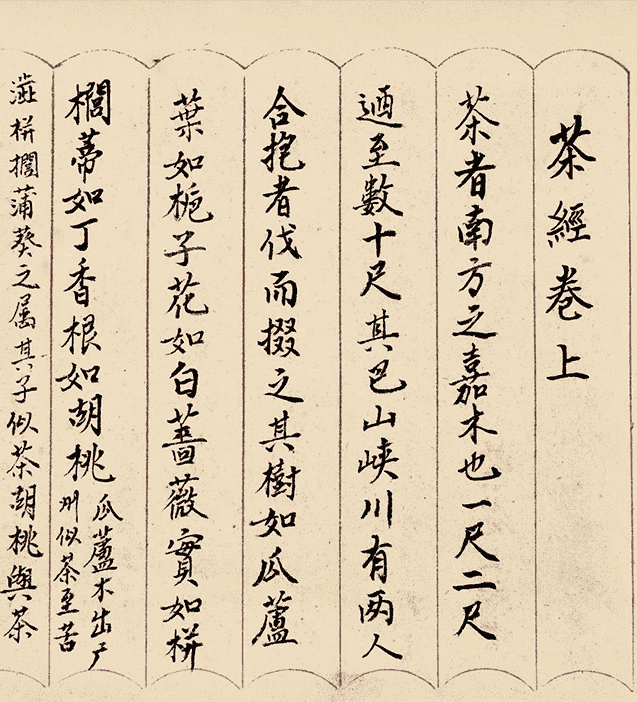 茶經卷上
茶者南方之嘉木也一尺二尺
迺至數十尺其巴山峽川有兩人
合抱者伐而掇之其樹如瓜蘆
葉如梔子花如白薔薇實如栟
櫚蒂如丁香根如胡桃
瓜蘆木出广
州似茶至苦
澁栟櫚蒲葵之属其子似茶胡桃與茶